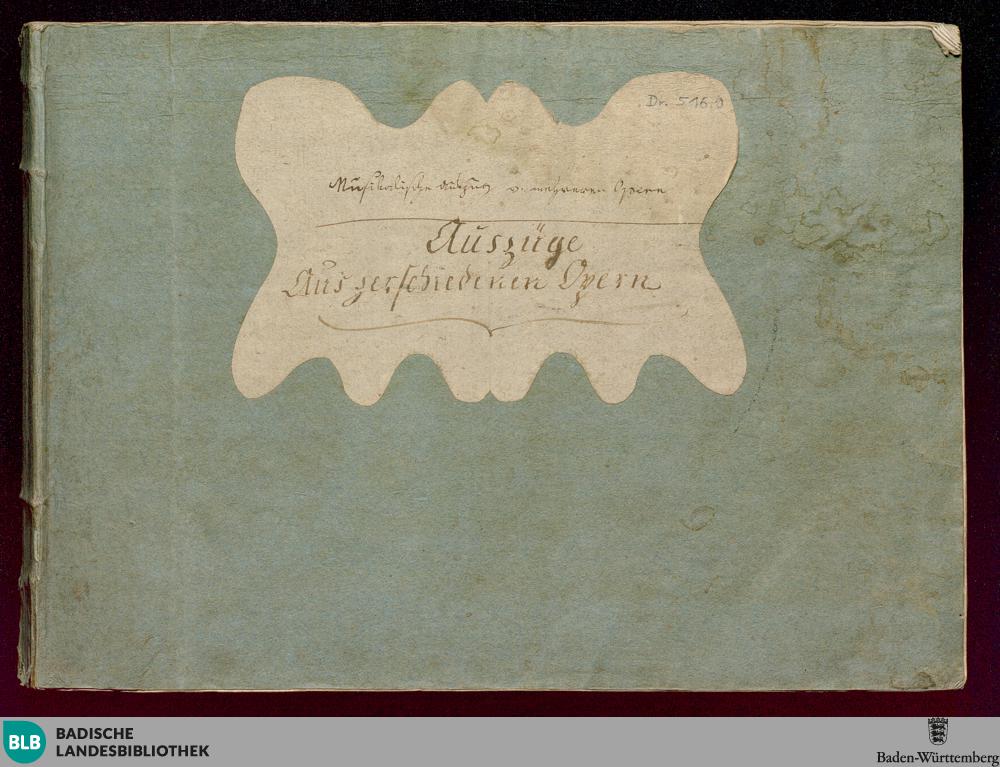 Dr. 516.9
Musikalische Auszug v. mehreren Opern
Auszüge
Aus verschiedenen Opern
BLB
BADISCHE
LANDESBIBLIOTHEK
Baden-Württemberg